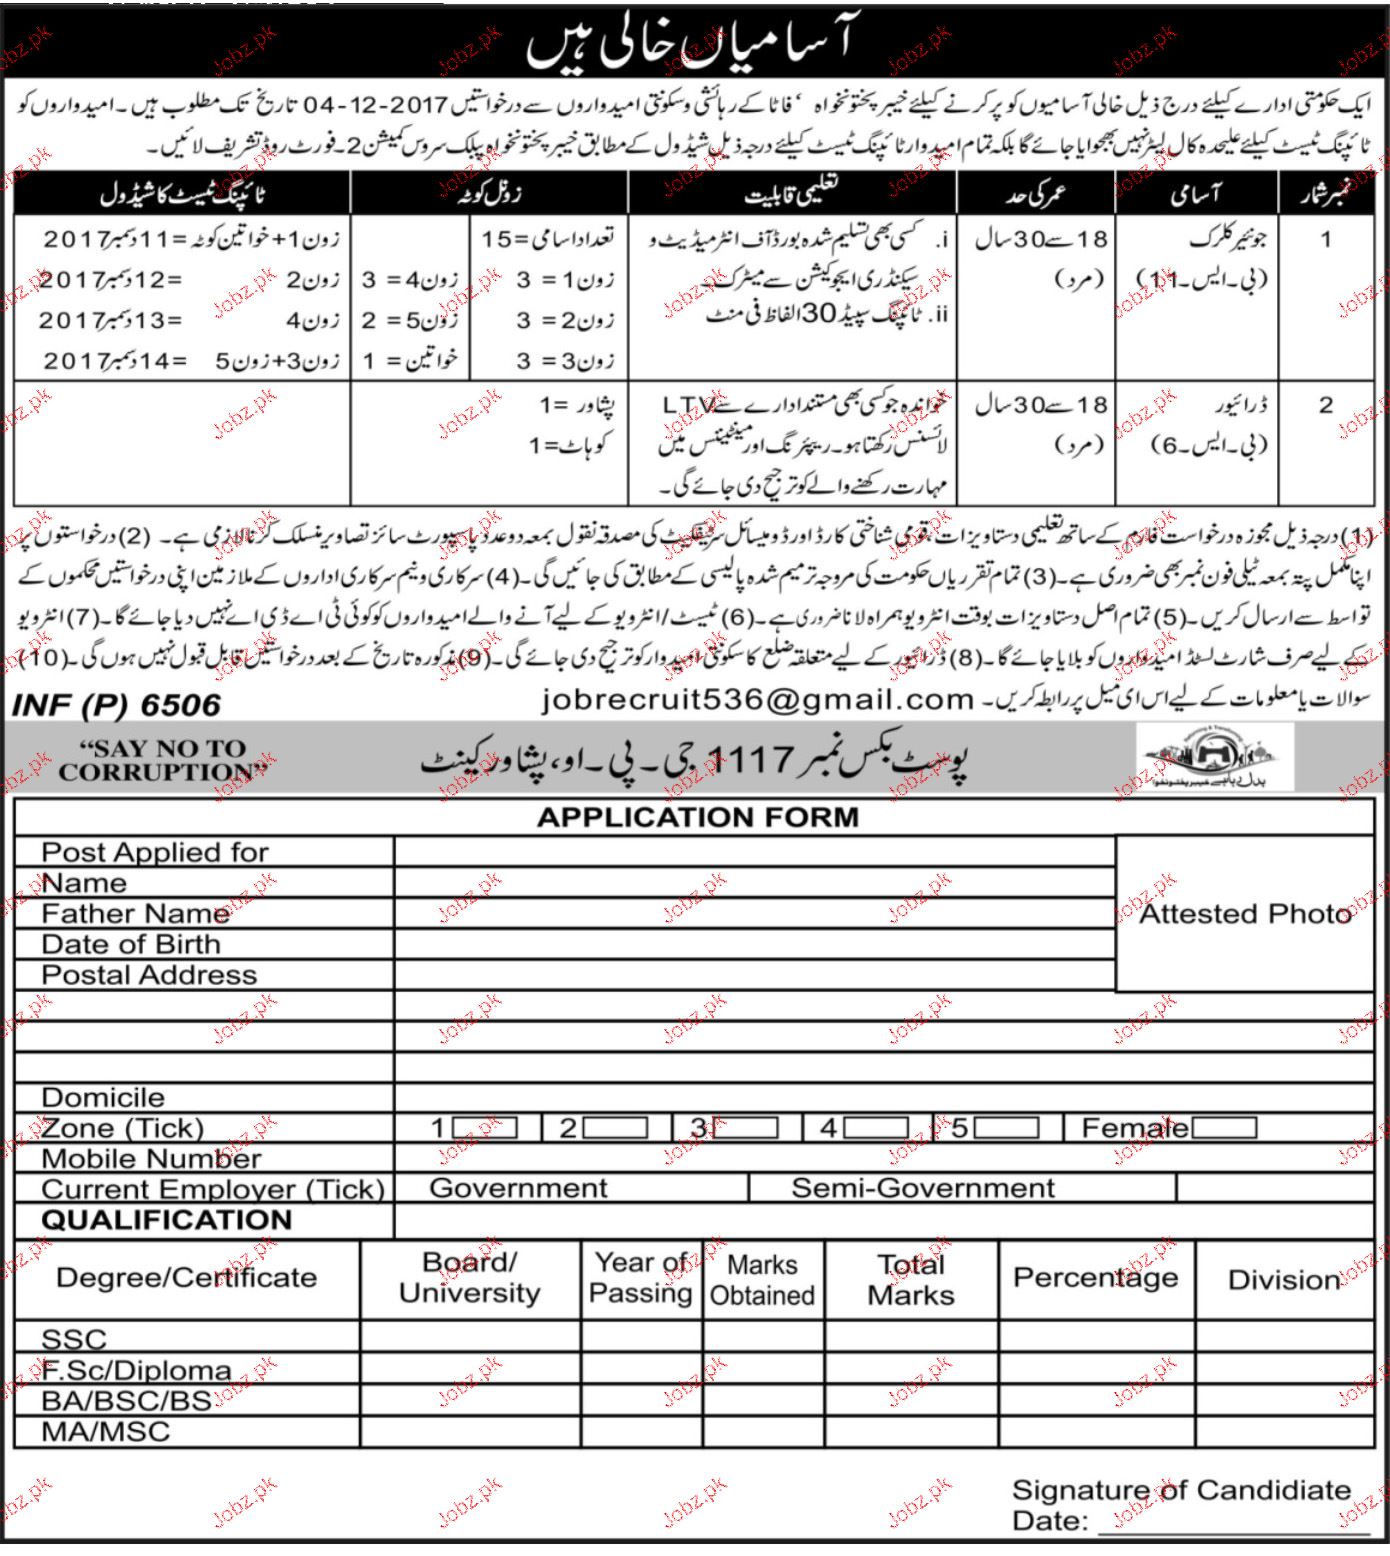 آسامیاں خالی ہیں
ایک حکومتی ادارے کیلئے درج ذیل خالی آسامیوں کو پر کرنے کیلئے خیبر پختونخواہ ‘ فاٹا کے رہائشی و سکونتی امیدواروں سے درخواستیں 04-12-2017 تاریخ تک مطلوب ہیں ۔ امیدواروں کو
ٹائپنگ ٹیسٹ کیلئے علیحدہ کال لیٹر نہیں بھجوایا جائے گا بلکہ تمام امیدوار ٹائپنگ ٹیسٹ کیلئے درجہ ذیل شیڈول کے مطابق خیبر پختونخواہ پبلک سروس کمیشن 2۔ فورٹ روڈ تشریف لائیں۔
نمبر شمار آسامی عمر کی حد تعلیمی قابلیت زونل کوٹہ ٹائپنگ ٹیسٹ کا شیڈول
1 جونیئر کلرک 18 سے 30 سال i. کسی بھی تسلیم شدہ بورڈ آف انٹرمیڈیٹ و تعداد اسامی = 15 زون 1 + خواتین کوٹہ = 11 دسمبر 2017
(بی۔ایس۔11) (مرد) سیکنڈری ایجوکیشن سے میٹرک۔ زون 1 = 3 زون 4 = 3 زون 2 = 12 دسمبر 2017
ii. ٹائپنگ سپیڈ 30 الفاظ فی منٹ زون 2 = 3 زون 5 = 2 زون 4 = 13 دسمبر 2017
زون 3 = 3 خواتین = 1 زون 3 + زون 5 = 14 دسمبر 2017
2 ڈرائیور 18 سے 30 سال خواندہ جو کسی بھی مستند ادارے سے LTV پشاور = 1
(بی۔ایس۔6) (مرد) لائسنس رکھتا ہو۔ ریپئرنگ اور مینٹیننس میں کوہاٹ = 1
مہارت رکھنے والے کو ترجیح دی جائے گی۔
(1) درجہ ذیل مجوزہ درخواست فارم کے ساتھ تعلیمی دستاویزات، قومی شناختی کارڈ اور ڈومیسائل سرٹیفکیٹ کی مصدقہ نقول بمعہ دو عدد پاسپورٹ سائز تصاویر منسلک کرنا لازمی ہے۔ (2) درخواستوں پر
اپنا مکمل پتہ بمعہ ٹیلی فون نمبر بھی ضروری ہے۔ (3) تمام تقرریاں حکومت کی مروجہ ترمیم شدہ پالیسی کے مطابق کی جائیں گی۔ (4) سرکاری و نیم سرکاری اداروں کے ملازمین اپنی درخواستیں محکموں کے
تواسط سے ارسال کریں۔ (5) تمام اصل دستاویزات بوقت انٹرویو ہمراہ لانا ضروری ہے۔ (6) ٹیسٹ/انٹرویو کے لیے آنے والے امیدواروں کو کوئی ٹی اے ڈی اے نہیں دیا جائے گا۔ (7) انٹرویو
کے لیے صرف شارٹ لسٹڈ امیدواروں کو بلایا جائے گا۔ (8) ڈرائیور کے لیے متعلقہ ضلع کا سکونتی امیدوار کو ترجیح دی جائے گی۔ (9) مذکورہ تاریخ کے بعد درخواستیں قابل قبول نہیں ہوں گی۔ (10)
سوالات یا معلومات کے لیے اس ای میل پر رابطہ کریں۔ jobrecruit536@gmail.com
INF (P) 6506
“SAY NO TO
CORRUPTION”
پوسٹ بکس نمبر 1117 جی۔پی۔او، پشاور کینٹ
APPLICATION FORM
Post Applied for
Name
Father Name
Attested Photo
Date of Birth
Postal Address
Domicile
Zone (Tick) 1 2 3 4 5 Female
Mobile Number
Current Employer (Tick) Government Semi-Government
QUALIFICATION
Degree/Certificate Board/University Year of Passing Marks Obtained Total Marks Percentage Division
SSC
F.Sc/Diploma
BA/BSC/BS
MA/MSC
Signature of Candidiate
Date:
Jobz.pk